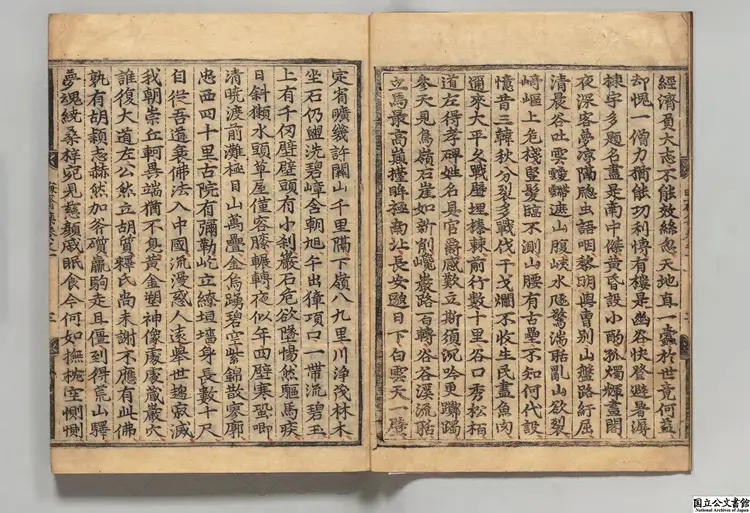 經濟負大志不能效絲忽天地真一蠹於世竟何益
却愧一僧力猶能功利博有樓是幽谷快登避暑溽
棟宇多題名盡是南中傑黄昏設小酌孤燭輝畫閣
夜深客夢凉隔牕虫語咽黎明與曹别山盤路紆屈
清晨谷吐雲靉靆遮山腹峽水颭驚湍聒亂山欲裂
崎嶇上危棧竪髮臨不測山腰有古壘不知何代設
憶昔三韓秋分裂多戰伐干戈爛不收生民盡魚肉
邇來大平久戰壘埋榛棘前行數十里谷口秀松栢
道左得孝碑姓名具官爵感歎立斯須沉吟更躑躅
參天見鳥嶺石崖如新削巉巖路百轉谷谷溪流聒
立馬最高巔眸極南北長安隨日下白雲天一壁
定省曠幾許關山千里隔下嶺八九里川浄茂林木
坐石仍盥洗碧嶂含朝旭午出獐項口一帶流碧玉
上有千仞壁壁頭有小刹巖石危欲墜惕然驅馬疾
日斜獺水頭草屋僅容膝輾轉夜似年四壁寒蛩唧
清曉渡前灘極目山萬疊金烏躍碧空紫錦寥廓
忠西四十里古院有彌勒屹立繚垣墻身長數十尺
自從吾道衰佛法入中國流漫惑人遠舉世趨寂滅
我朝崇丘軻異端猶不息黄金塑神像處處藏巖穴
誰復大道左公然立胡質釋氏尚未謝不應有此佛
孰有胡穎志赫然加斧礩羸驂走且僵到得荒山驛
夢魂繞桑梓宛見慈顔戚眠食今何如撫枕空惻惻
国立公文書館
National Archives of Japan